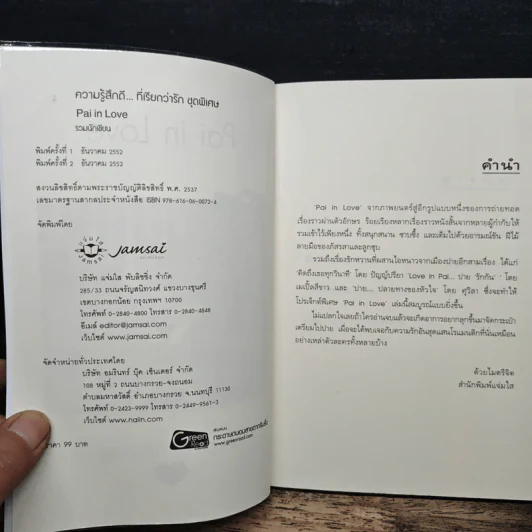 ความรู้สึกดี... ที่เรียกว่ารัก ชุดพิเศษ
Pai in Love
รวมนักเขียน
พิมพ์ครั้งที่ 1 ธันวาคม 2552
พิมพ์ครั้งที่ 2 ธันวาคม 2552
สงวนลิขสิทธิ์ตามพระราชบัญญัติลิขสิทธิ์ พ.ศ. 2537
เลขมาตรฐานสากลประจำหนังสือ ISBN 978-616-06-0072-4
จัดพิมพ์โดย
jamsai
บริษัท แจ่มใส พับลิชชิ่ง จำกัด
285/33 ถนนจรัญสนิทวงศ์ แขวงบางขุนศรี
เขตบางกอกน้อย กรุงเทพฯ 10700
โทรศัพท์ 0-2840-4800 โทรสาร 0-2840-4848
อีเมล์ editor@jamsai.com
เว็บไซต์ www.jamsai.com
จัดจำหน่ายทั่วประเทศโดย
บริษัท อมรินทร์ บุ๊ค เซ็นเตอร์ จำกัด
108 หมู่ที่ 2 ถนนบางกรวย-จงถนอม
ตำบลมหาสวัสดิ์ อำเภอบางกรวย จ.นนทบุรี 11130
โทรศัพท์ 0-2423-9999 โทรสาร 0-2449-9561-3
เว็บไซต์ www.naiin.com
ราคา 99 บาท
Green Read
กระดาษถนอมสายตากรีนรี้ด
www.greenread.com
คำนำ
'Pai in Love' จากภาพยนตร์สู่อีกรูปแบบหนึ่งของการถ่ายทอด
เรื่องราวผ่านตัวอักษร ร้อยเรียงหลากเรื่องราวหนังสั้นจากหลายผู้กำกับให้
รวมเข้าไว้เพียงหนึ่ง ทั้งสนุกสนาน ซาบซึ้ง และเต็มไปด้วยอารมณ์ขัน ฝีไม้
ลายมือของภัสรสาและลูกชุบ
รวมถึงเรื่องรักหวานที่ผสานไอหนาวจากเมืองปายอีกสามเรื่อง ได้แก่
'คิดถึงเธอทุกวินาที' โดย ปัญญ์ปรียา 'Love in Pai... ปาย 'รักกัน' ' โดย
เผเบิ้ลสีขาว และ 'ปาย... ปลายทางของหัวใจ' โดย ศุวิลา ซึ่งจะทำให้
โปรเจ็กต์พิเศษ 'Pai in Love' เล่มนี้สมบูรณ์แบบยิ่งขึ้น
ไม่แปลกใจเลยถ้าใครอ่านจบแล้วจะเกิดอาการอยากลุกขึ้นมาจัดกระเป๋า
เตรียมไปปาย เพื่อจะได้พบเจอกับความรักอันสุดแสนโรแมนติกที่นั่นเหมือน
อย่างเหล่าตัวละครทั้งหลายบ้าง
ด้วยไมตรีจิต
สำนักพิมพ์แจ่มใส